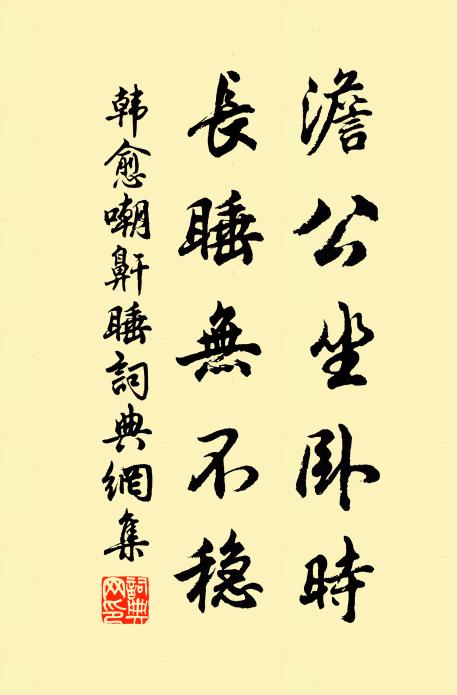 澹公坐卧時
長睡無不穩
韩愈嘲鼾睡詞典網集
詞典網印